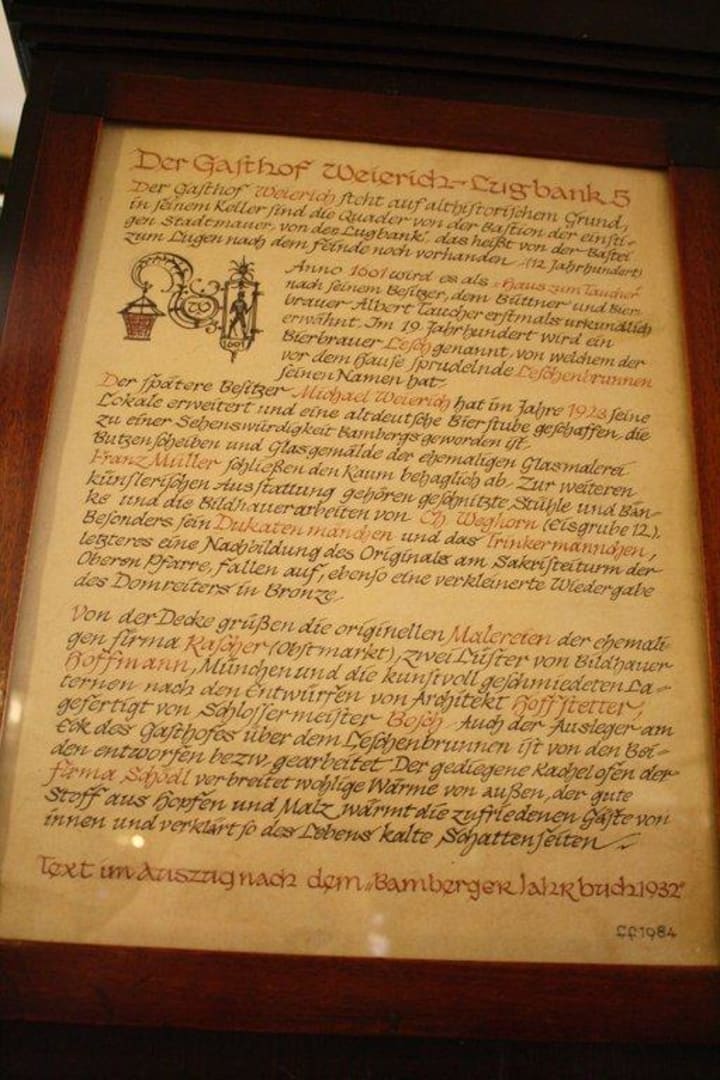 Der Gasthof Weierich-Lugbank 5
Der Gasthof Weierich steht auf althistorischem Grund,
in seinem Keller sind die Quader von der Bastion der einsti-
gen Stadtmauer, von der „Lugbank“, das heißt von der Bastei
zum Lugen nach dem Feinde noch vorhanden. (12. Jahrhundert)
Anno 1601 wird es als „Haus zum Taucher“
nach seinem Besitzer, dem Büttner und Bier-
brauer Albert Taucher erstmals urkundlich
erwähnt. Im 19. Jahrhundert wird ein
Bierbrauer Lesch genannt, von welchem der
vor dem Hause sprudelnde Leschenbrunnen
seinen Namen hat.
1601
Der spätere Besitzer Michael Weierich hat im Jahre 1928 seine
Lokale erweitert und eine altdeutsche Bierstube geschaffen, die
zu einer Sehenswürdigkeit Bambergs geworden ist.
Butzenscheiben und Glasgemälde der ehemaligen Glasmalerei
Franz Müller schließen den Raum behaglich ab. Zur weiteren
künstlerischen Ausstattung gehören geschnitzte Stühle und Bän-
ke und die Bildhauerarbeiten von Ch. Weghorn (Eisgrube 12).
Besonders sein Dukatenmännchen und das Trinkermännchen,
letzteres eine Nachbildung des Originals am Sakristeiturm der
Oberen Pfarre, fallen auf, ebenso eine verkleinerte Wiedergabe
des Domreiters in Bronze.
Von der Decke grüßen die originellen Malereien der ehemali-
gen Firma Rascher (Obstmarkt), zwei Lüster von Bildhauer
Hoffmann, München und die kunstvoll geschmiedeten La-
ternen nach den Entwürfen von Architekt Hoffstetter,
gefertigt von Schlossermeister Bosch. Auch der Ausleger am
Eck des Gasthofes über dem Leschenbrunnen ist von den Bei-
den entworfen bezw. gearbeitet. Der gediegene Kachelofen der
Firma Schödl verbreitet wohlige Wärme von außen, der gute
Stoff aus Hopfen und Malz wärmt die zufriedenen Gäste von
innen und verklärt so des Lebens kalte Schattenseiten.
Text im Auszug nach dem „Bamberger Jahrbuch 1932“
1984